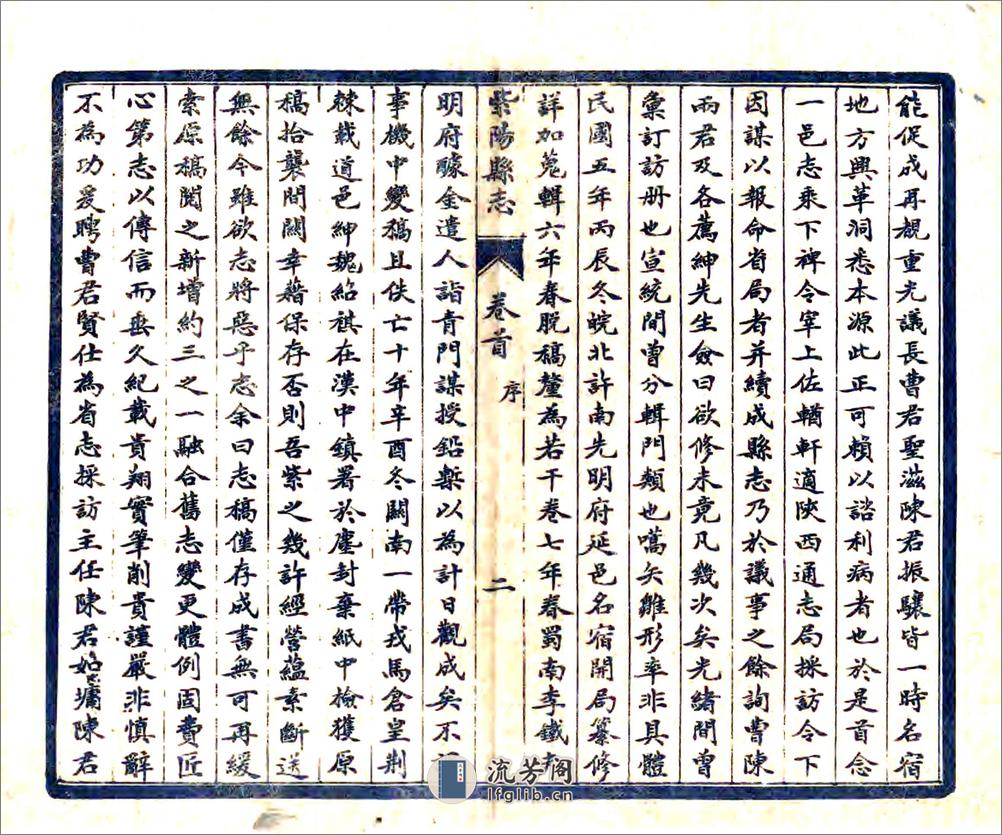 能促成再覩重光議長曹君聖滋陳君振驤皆一時名宿
地方興革洞悉本源此正可賴以諮利病者也於是首念
一邑志乘下裨令宰上佐輶軒適陝西通志局採訪令下
因謀以報命省局者并續成縣志乃於議事之餘詢曹陳
兩君及各薦紳先生僉曰欲修未竟凡幾次矣光緒間曾
彙訂訪册也宣統間曾分輯門類也嘻矣雛形率非具體
民國五年丙辰冬皖北許南先明府延邑名宿開局纂修
詳如蒐輯六年春脫稿釐為若干卷七年春蜀南李鐵
紫陽縣志 卷首 序 二
明府醵金遣人詣青門謀授鉛槧以為計日觀成矣不
事機中變稿且佚亡十年辛酉冬關南一帶戎馬倉皇荆
棘載道邑紳魏紹祺在漢中鎮署於塵封棄紙中檢獲原
稿拾襲間關幸藉保存否則吾紫之幾許經營蘊素斷送
無餘今雖欲志將惡乎志余曰志稿僅存成書無可再緩
索原稿閱之新增約三之一融合舊志變更體例固費匠
心第志以傳信而垂久紀載貴翔實筆削貴謹嚴非慎辭
不為功爰聘曹君賢仕為省志採訪主任陳君如墉陳君
流芳阁
lfglib.cn